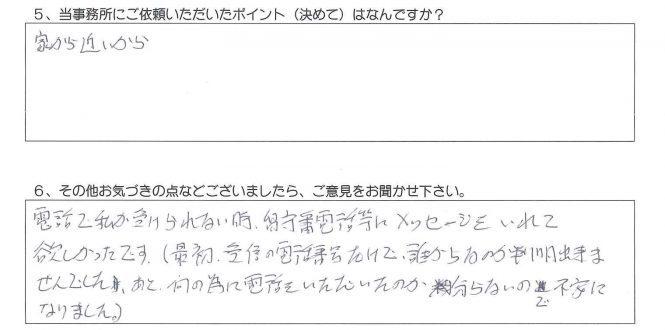 5、当事務所にご依頼いただいたポイント（決めて）はなんですか？
家から近いから
6、その他お気づきの点などございましたら、ご意見をお聞かせ下さい。
電話で私が受けられない時、留守番電話等にメッセージをいれて
欲しかったです。(最初、受信の電話番号だけで、誰からなのか判明出来ま
せんでした。あと、何の為に電話をいただいたのか分らないので不安に
なりました。)